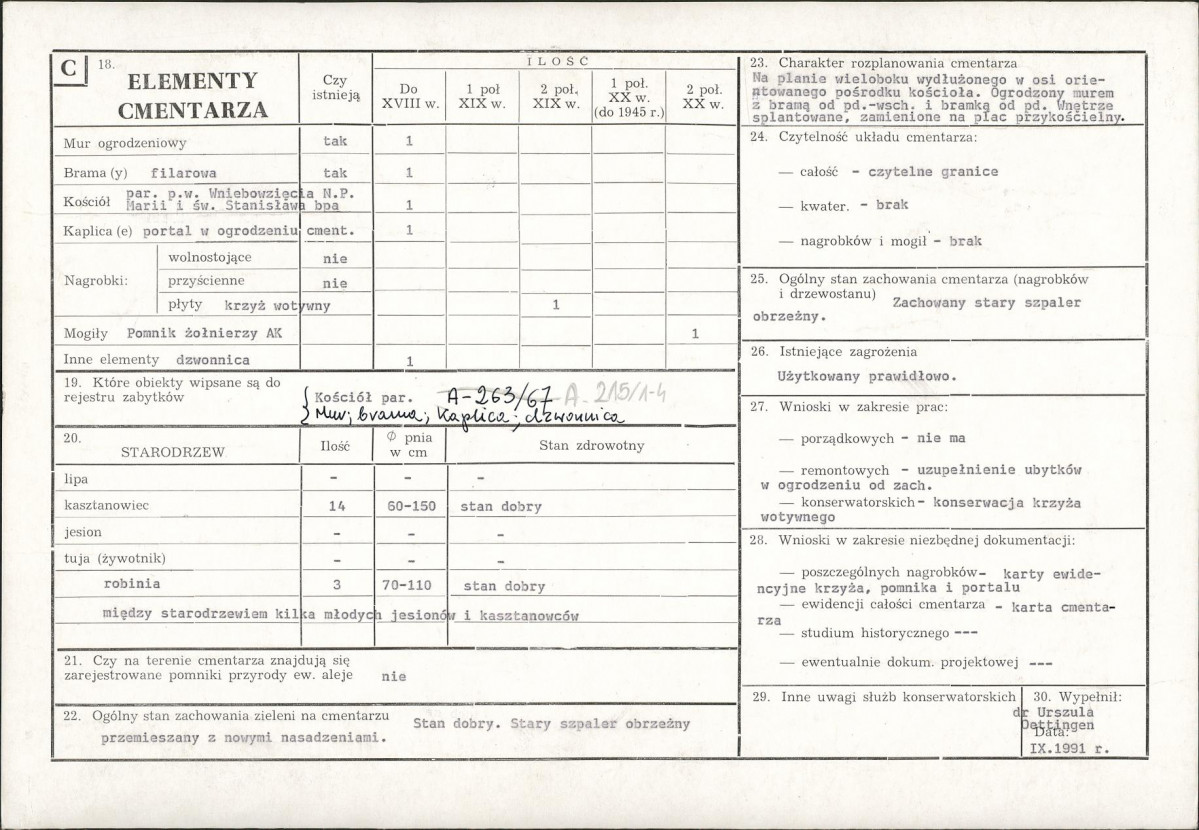 C 18.
ELEMENTY
CMENTARZA
Czy
istnieją
ILOŚĆ
Do
XVIII w.
1 poł
XIX w.
2 poł.
XIX w.
1 poł.
XX w.
(do 1945 r.)
2 poł.
XX w.
Mur ogrodzeniowy tak 1
Brama (y) filarowa tak 1
Kościół par. p.w. Wniebowzięcia N.P.
Marii i św. Stanisława bpa 1
Kaplica (e) portal w ogrodzeniu cment. 1
Nagrobki:
wolnostojące nie
przyścienne nie
płyty krzyż wotywny 1
Mogiły Pomnik żołnierzy AK 1
Inne elementy dzwonnica 1
19. Które obiekty wipsane są do
rejestru zabytków
Kościół par. A-263/67 A. 215/1-4
Mur; brama; Kaplica; dzwonnica
20.
STARODRZEW
Ilość
Ø pnia
w cm
Stan zdrowotny
lipa - - -
kasztanowiec 14 60-150 stan dobry
jesion - - -
tuja (żywotnik) - - -
robinia 3 70-110 stan dobry
między starodrzewiem kilka młodych jesionów i kasztanowców
21. Czy na terenie cmentarza znajdują się
zarejestrowane pomniki przyrody ew. aleje nie
22. Ogólny stan zachowania zieleni na cmentarzu Stan dobry. Stary szpaler obrzeżny
przemieszany z nowymi nasadzeniami.
23. Charakter rozplanowania cmentarza
Na planie wieloboku wydłużonego w osi orie-
ntowanego pośrodku kościoła. Ogrodzony murem
z bramą od pd.-wsch. i bramką od pd. Wnętrze
splantowane, zamienione na plac przykościelny.
24. Czytelność układu cmentarza:
— całość - czytelne granice
— kwater. - brak
— nagrobków i mogił - brak
25. Ogólny stan zachowania cmentarza (nagrobków
i drzewostanu) Zachowany stary szpaler
obrzeżny.
26. Istniejące zagrożenia
Użytkowany prawidłowo.
27. Wnioski w zakresie prac:
— porządkowych - nie ma
— remontowych - uzupełnienie ubytków
w ogrodzeniu od zach.
— konserwatorskich - konserwacja krzyża
wotywnego
28. Wnioski w zakresie niezbędnej dokumentacji:
— poszczególnych nagrobków - karty ewide-
ncyjne krzyża, pomnika i portalu
— ewidencji całości cmentarza - karta cmenta-
rza
— studium historycznego ---
— ewentualnie dokum. projektowej ---
29. Inne uwagi służb konserwatorskich
30. Wypełnił:
dr Urszula
Oettingen
Data:
IX.1991 r.